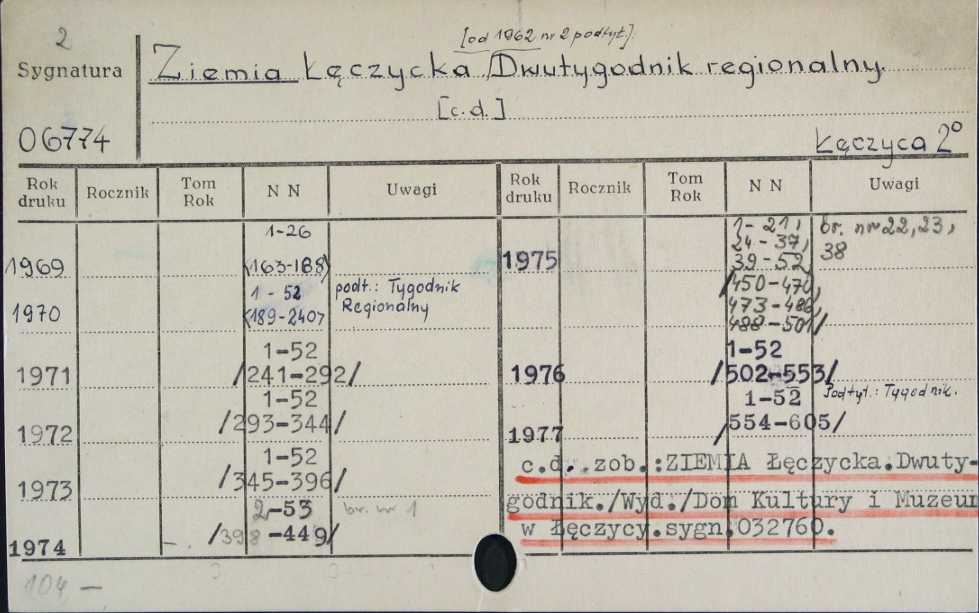 2
[od 1962 nr 2 podtyt.]
Sygnatura
Ziemia Łęczycka Dwutygodnik regionalny.
[c.d.]
06774
Łęczyca 2°
Rok druku Rocznik Tom Rok N N Uwagi
1969 1-26 <163-188>
1970 1-52 <189-240> podt.: Tygodnik Regionalny
1971 1-52 /241-292/
1972 1-52 /293-344/
1973 1-52 /345-396/
1974 2-53 /398-449/ br. nr 1
Rok druku Rocznik Tom Rok N N Uwagi
1975 1-21, 24-37, 39-52 br. nr 22, 23, 38
/450-470,
473-486,
488-501/
1976 1-52 /502-553/
1977 1-52 /554-605/ Podtyt.: Tygodnik.
c.d. zob.:ZIEMIA Łęczycka.Dwuty-
godnik./Wyd./Dom Kultury i Muzeum
w Łęczycy.sygn.032760.
104 -